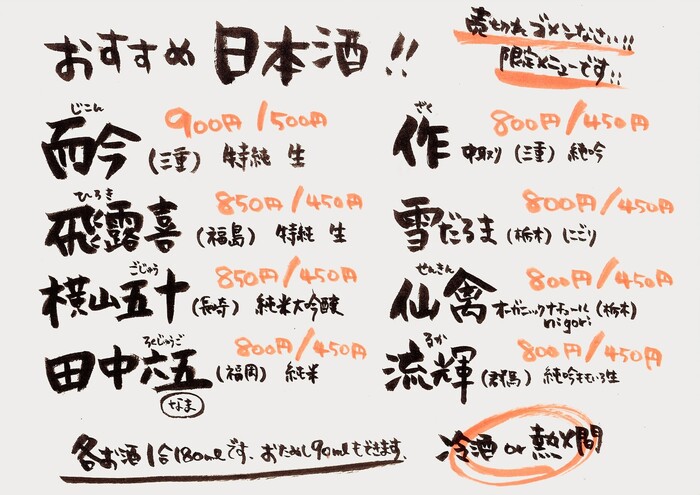 おすすめ 日本酒!!
売切れゴメンなさい!!
限定メニューです!!
じこん
900円/500円
而今 (三重) 特純 生
ひろき
850円/450円
飛露喜 (福島) 特純 生
ごじゅう
850円/450円
横山五十 (長崎) 純米大吟醸
ろくじゅうご
800円/450円
田中六五 (福岡) 純米
なま
ざく
800円/450円
作 中取り (三重) 純吟
800円/450円
雪だるま (栃木) にごり
せんきん
800円/450円
仙禽 オーガニックナチュール (栃木)
nigori
るか
800円/450円
流輝 (群馬) 純吟ももいろ生
各お酒1合180mlです、おためし90mlもできます。
冷酒 or 熱燗